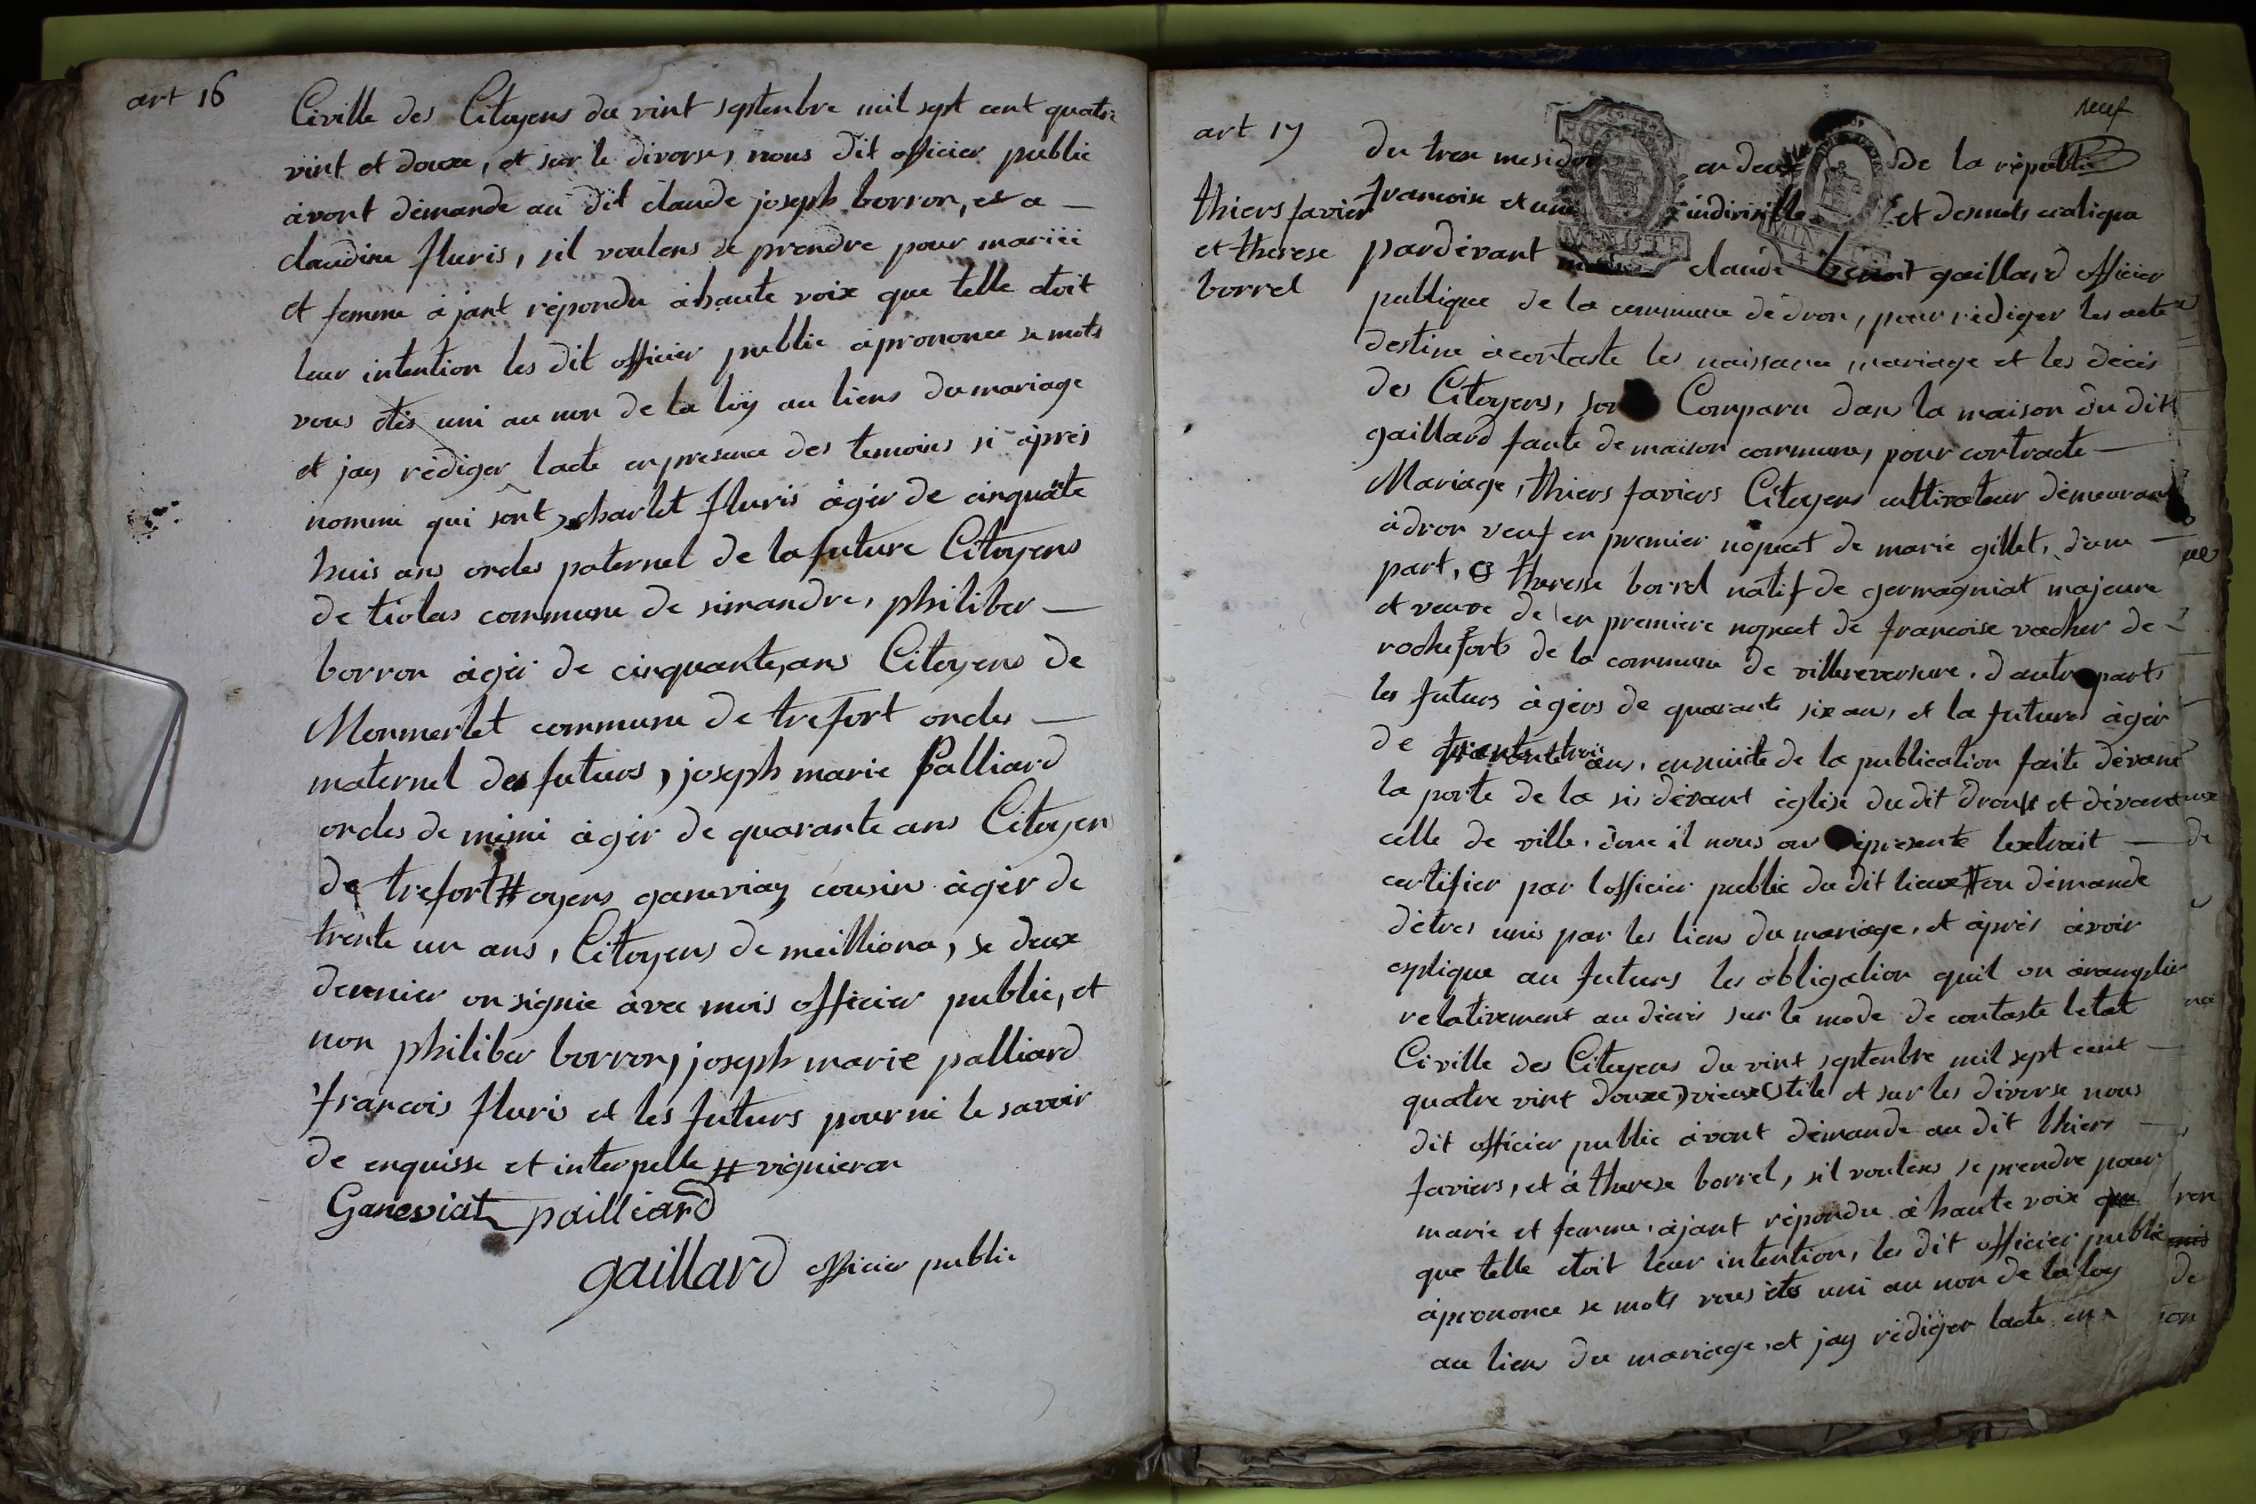 art 16
Civille des Citoyens du vint septenbre mil sept cent quatre
vint et douxe, et sur le diverse, nous dit officier public
àvont démande au dit claude joseph borron, et a —
claudine fluris, sil voulens se prendre pour mariii
et femme àjant répondu àhaute voix que telle étoit
leur intention les dit officier public àprononce se mots
vous étés uni au non de la loÿ au liens du mariage
et jay rédiger lacte en presence des temoins si àprés
nommé qui sont, charlet fluris âgér de cinquāte
huis ans oncles paternel de la future Citoyens
de tiolas commune de simandre, philiber —
borron àgér de cinquante,ans Citoyens de
Monmerlet commune de trefort oncles —
maternel des futurs, joseph marie Palliard
oncles de mémé àgér de quarante ans Citoyen
de trefort # oyens ganeviay cousin àgér de
trente un ans, Citoyens de meilliona, se deux
dernier on signié àvec mois officier public, et
non philiber borron, joseph marie palliard
francois fluris et les futurs pour ne le savoir
de enquisse et interpelle # vignieron
Ganeviat pailliard
gaillard officier public
neuf
art 17
thiers favier
et therese
borrel
du trese mesidor en deux de la répub
francoise et une indivisible et desmots
pardévant claude benoit gaillard officier
publique de la commune dédron, pour rédiger les acte
destine àcontaste les naissance, mariage et les décés
des Citoyens, son Comparu dans la maison du dit
gaillard faute de maison commune, pour contracte —
Mariage, thiers faviers Citoyens cultivateur démeurant
àdron veuf en premier nopcet de marie gillet, d'une —
part, et therese borrel nátif de germagniat majeure
et veuve de en premiere nopcet de francoise vacher de —
rochefort de la commune de villereversure. d'autre part
les futurs àgérs de quarante six ans, et la future àgér
de trois ans, ensuite de la publication faite dévant
la porte de la sis dévant église du dit drou et dévant
celle de ville. dont il nous on représente lextrait —
certifier par lofficier public du dit lieux # on démande
d'étres unis par les liens du mariage, et àprés àvoir
esplique au futurs les obligation quil on àramplir
relativement au décrés sur le mode de contaste létat
Civille des Citoyens du vint septenbre mil sept cent —
quatre vint douxe) vieux stile et sur les diverse nous
dit officier public àvont démande au dit thiers —
faviers, et à therese borrel, sil voulens se prendre pour
marié et femme, àjant répondu à haute voix
que telle étoit leur intention, les dit officier public
àprononce se mots vous étés uni au non de la loy
au liens du mariage, et jay rédiger lacte en